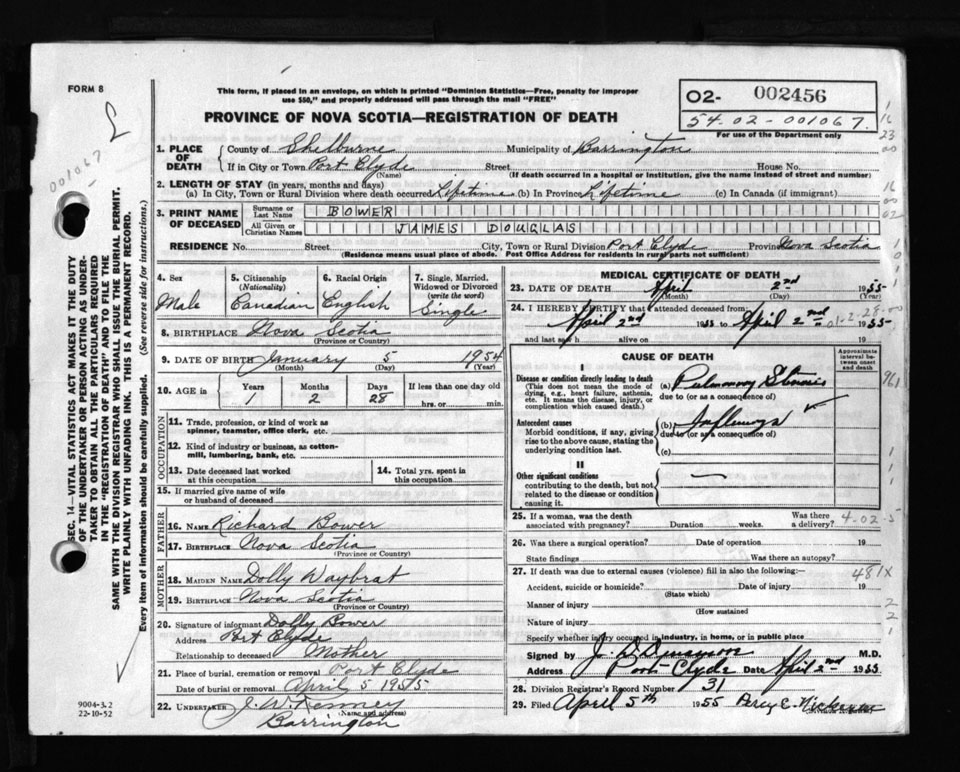 FORM 8
This form, if placed in an envelope, on which is printed "Dominion Statistics—Free, penalty for improper
use $50," and properly addressed will pass through the mail "FREE"
PROVINCE OF NOVA SCOTIA—REGISTRATION OF DEATH
02- 002456
54.02-001067.
For use of the Department only
001067
1. PLACE OF DEATH
County of Shelburne Municipality of Barrington
If in City or Town Port Clyde Street House No.
(Name) (If death occurred in a hospital or institution, give the name instead of street and number)
2. LENGTH OF STAY (in years, months and days)
(a) In City, Town or Rural Division where death occurred Lifetime (b) In Province Lifetime (c) In Canada (if immigrant)
3. PRINT NAME OF DECEASED
Surname or Last Name BOWER
All Given or Christian Names JAMES DOUGLAS
RESIDENCE No. Street City, Town or Rural Division Port Clyde Province Nova Scotia
(Residence means usual place of abode. Post Office Address for residents in rural parts not sufficient)
4. Sex
Male
5. Citizenship
(Nationality)
Canadian
6. Racial Origin
English
7. Single, Married, Widowed or Divorced
(write the word)
Single
8. BIRTHPLACE Nova Scotia
(Province or Country)
9. DATE OF BIRTH January 5 1954
(Month) (Day) (Year)
10. AGE in Years Months Days If less than one day old
1 2 28 hrs. or min.
OCCUPATION
11. Trade, profession, or kind of work as
spinner, teamster, office clerk, etc.
12. Kind of industry or business, as cotton-
mill, lumbering, bank, etc.
13. Date deceased last worked
at this occupation
14. Total yrs. spent in
this occupation
15. If married give name of wife
or husband of deceased
FATHER
16. NAME Richard Bower
17. BIRTHPLACE Nova Scotia
(Province or Country)
MOTHER
18. MAIDEN NAME Dolly Waybrat
19. BIRTHPLACE Nova Scotia
(Province or Country)
20. Signature of informant Dolly Bower
Address Port Clyde
Relationship to deceased Mother
21. Place of burial, cremation or removal Port Clyde
Date of burial or removal April 5 1955
22. UNDERTAKER J. W. Kenney
(Name and address)
Barrington
MEDICAL CERTIFICATE OF DEATH
23. DATE OF DEATH April 2nd 1955
(Month) (Day) (Year)
24. I HEREBY CERTIFY that I attended deceased from
April 2nd 1955 to April 2nd 1955
01-2-28-00
and last saw h alive on 19
CAUSE OF DEATH
Approximate
interval be-
tween onset
and death
I
Disease or condition directly leading to death
(This does not mean the mode of
dying, e.g., heart failure, asthenia,
etc. It means the disease, injury, or
complication which caused death.)
(a) Pulmonary
due to (or as a consequence of)
Antecedent causes
Morbid conditions, if any, giving
rise to the above cause, stating the
underlying condition last.
(b) Influenza
due to (or as a consequence of)
(c)
II
Other significant conditions
contributing to the death, but not
related to the disease or condition
causing it.
25. If a woman, was the death
associated with pregnancy? Duration weeks. Was there
a delivery?
4-02-5
26. Was there a surgical operation? Date of operation 19
State findings Was there an autopsy?
27. If death was due to external causes (violence) fill in also the following:—
481X
Accident, suicide or homicide? Date of injury 19
(State which)
Manner of injury
(How sustained
Nature of injury
Specify whether injury occurred in industry, in home, or in public place
Signed by J. D. M.D.
Address Port Clyde Date April 2nd 1955
28. Division Registrar's Record Number 31
29. Filed April 5th 1955 Percy E. Nickerson
SEC. 14—VITAL STATISTICS ACT MAKES IT THE DUTY
OF THE UNDERTAKER OR PERSON ACTING AS UNDER-
TAKER TO OBTAIN ALL THE PARTICULARS REQUIRED
IN THE "REGISTRATION OF DEATH" AND TO FILE THE
SAME WITH THE DIVISION REGISTRAR WHO SHALL ISSUE THE BURIAL PERMIT.
WRITE PLAINLY WITH UNFADING INK. THIS IS A PERMANENT RECORD.
Every item of information should be carefully supplied. (See reverse side for instructions.)
9004-3.2
22-10-52